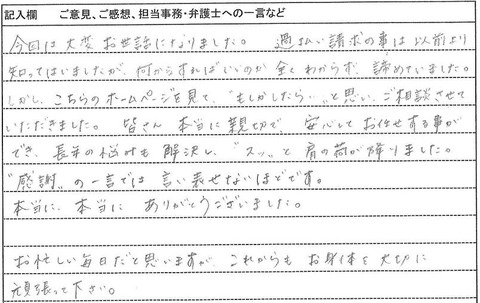 記入欄 ご意見、ご感想、担当事務・弁護士への一言など
今回は大変お世話になりました。 過払い請求の事は以前より
知ってはいましたが、何からすればいいのか全くわからず、諦めていました。
しかし、こちらのホームページを見て、"もしかしたら…"と思い、ご相談させて
いただきました。 皆さん本当に親切で 安心してお任せする事が
でき、長年の悩みも解決し、"スッ"と肩の荷が降りました。
"感謝"の一言では言い表せないほどです。
本当に、本当に ありがとうございました。
お忙しい毎日だと思いますが、これからもお身体を大切に
頑張って下さい。